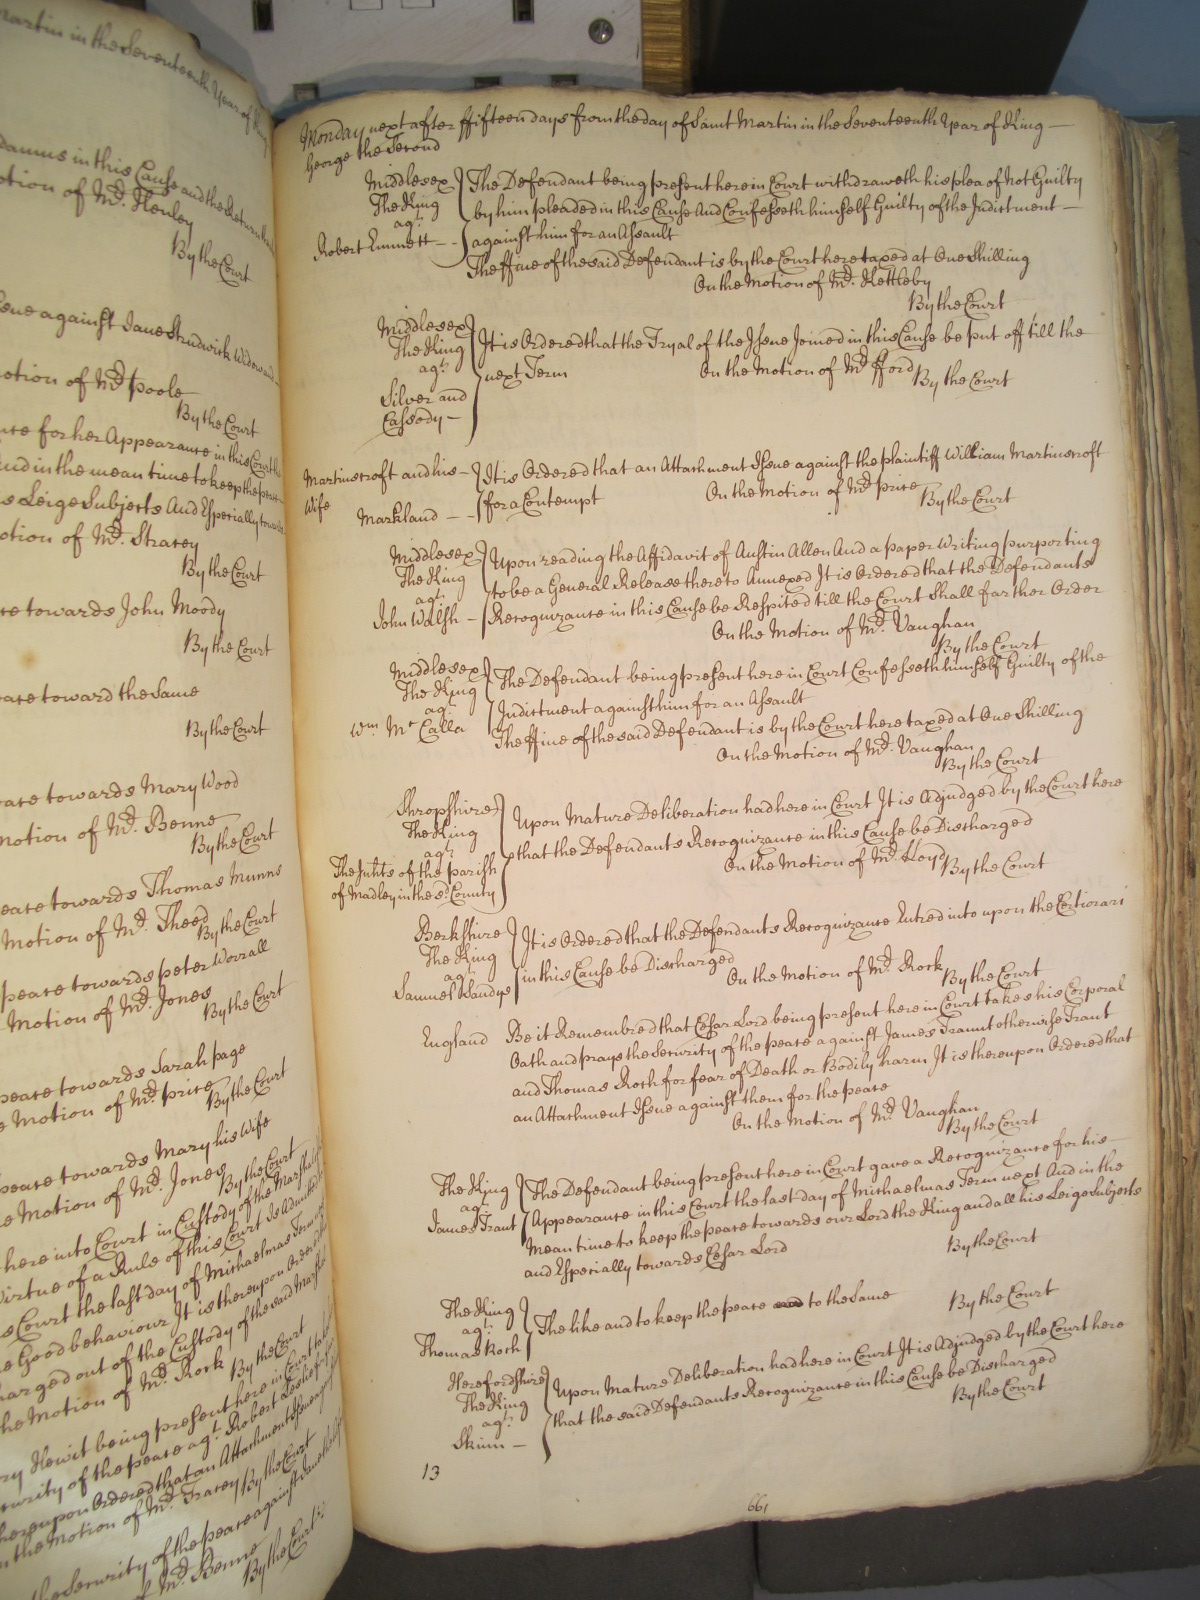 Martin in the Seventeenth Year of King
damus in this Cause and the Return
otion of Mr. Henley
By the Court
sue against Jane Strudwick Widow and
otion of Mr. Poole
By the Court
nce for her Appearance in this Court the
And in the mean time to keep the peace
is Leige Subjects And Especially towards
otion of Mr. Stracey
By the Court
ce towards John Moody
By the Court
eace toward the Same
By the Court
eace towards Mary Wood
Motion of Mr. Benne
By the Court
eace towards Thomas Munns
Motion of Mr. Theed
By the Court
peace towards Peter Worrall
Motion of Mr. Jones
By the Court
peace towards Sarah page
e Motion of Mr. price
By the Court
peace towards Mary his Wife
e Motion of Mr. Jones
By the Court
here into Court in Custody of the Marshall
Virtue of a Rule of this Court Is Admitted
s Court the last day of Michaelmas Term
e Good behaviour It is thereupon Ordered
harged out of the Custody of the said Marshal
he Motion of Mr. Rock By the Court
ry Hewit being present here in Court takes
curity of the peace agt. Robert Leslie for
hereupon Ordered that an Attachment Issue against
n the Motion of Mr. Tracey By the Court
the Security of the peace against Jane
of Mr. Benne
By the Court
Monday next after ffifteen days from the day of Saint Martin in the Seventeenth Year of King
George the Second
Middlesex
The King
agt.
Robert Emmett
The Defendant being present here in Court withdraweth his plea of Not Guilty
by him pleaded in this Cause And Confesseth himself Guilty of the Indictment
against him for an Assault
The ffine of the said Defendant is by the Court here taxed at One Shilling
On the Motion of Mr. Kettleby
By the Court
Middlesex
The King
agt.
Silver and
Cassody
It is Ordered that the Tryal of the Issue Joined in this Cause be put off till the
next Term On the Motion of Mr. fford
By the Court
Martinscroft and his
Wife
Markland
It is Ordered that an Attachment Issue against the plaintiff William Martinscroft
for a Contempt On the Motion of Mr. Price
By the Court
Middlesex
The King
agt.
John Walsh
Upon reading the Affidavit of Austin Allen And a paper Writing purporting
to be a General Release thereto Annexed It is Ordered that the Defendants
Recognizance in this Cause be Respited till the Court Shall farther Order
On the Motion of Mr. Vaughan
By the Court
Middlesex
The King
agt.
Wm. Mc Calla
The Defendant being present here in Court Confesseth himself Guilty of the
Indictment against him for an Assault
The ffine of the said Defendant is by the Court here taxed at One Shilling
On the Motion of Mr. Vaughan
By the Court
Shropshire
The King
agt.
The Inhts of the parish
of Madley in the sd. County
Upon Mature Deliberation had here in Court It is Adjudged by the Court here
that the Defendants Recognizance in this Cause be Discharged
On the Motion of Mr. Lloyd
By the Court
Berkshire
The King
agt.
Samuel Sandys
It is Ordered that the Defendants Recognizance Entred into upon the Certiorari
in this Cause be Discharged
On the Motion of Mr. Rock
By the Court
England Be it Remembred that Cesar Lord being present here in Court takes his Corporal
Oath and prays the Security of the peace against James Traunt otherwise Trant
and Thomas Roch for fear of Death or Bodily harm It is thereupon Ordered that
an Attachment Issue against them for the peace
On the Motion of Mr. Vaughan
By the Court
The King
agt.
James Trant
The Defendant being present here in Court gave a Recognizance for his
Appearance in this Court the last day of Michaelmas Term next And in the
Mean time to keep the peace towards our Lord the King and all his Leige Subjects
and Especially towards Cesar Lord
By the Court
The King
agt.
Thomas Roch
The like and to keep the peace to the Same
By the Court
Herefordshire
The King
agt.
Skinn
Upon Mature Deliberation had here in Court It is Adjudged by the Court here
that the said Defendants Recognizance in this Cause be Discharged
By the Court
13
661